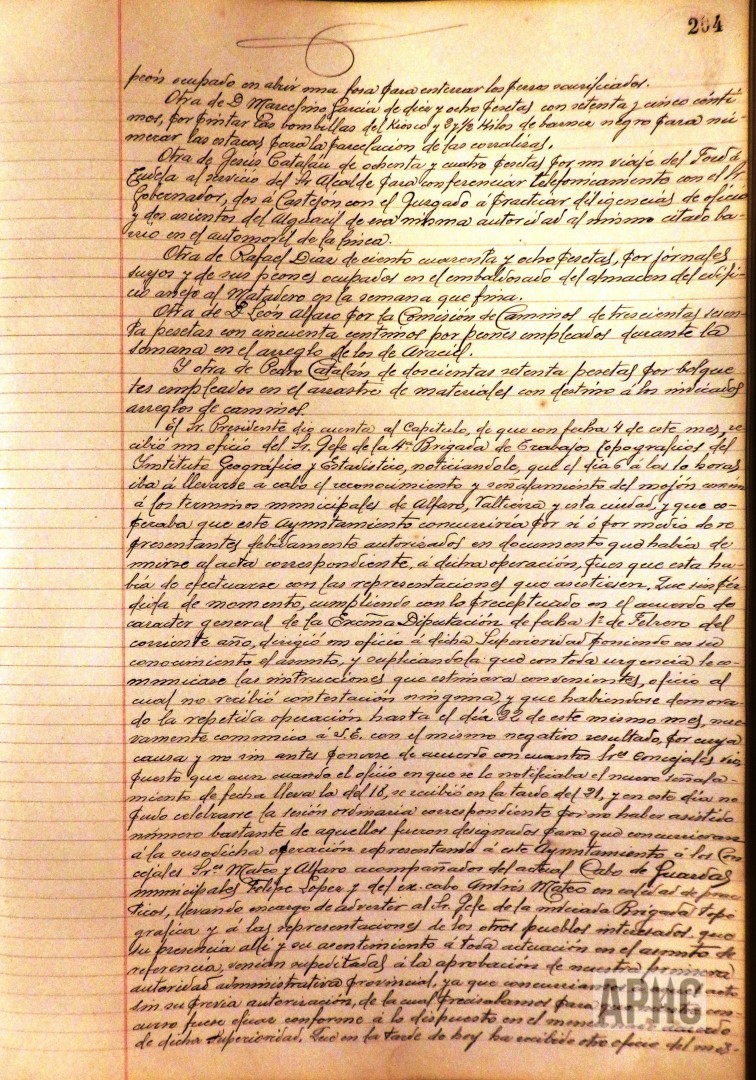 204
peón ocupado en abrir una fosa para enterrar los perros sacrificados.
Otra de D. Marcelino García de diez y ocho pesetas con setenta y cinco cénti
mos, por pintar las bombillas del Kiosco y 2 y ½ kilos de barniz negro para nu
merar las estacas para la parcelación de las corralizas.
Otra de Jesús Catalán de ochenta y cuatro pesetas por un viaje del Ford á
Tudela al servicio del Sr Alcalde para conferenciar telefónicamente con el Sr
Gobernador, dos á Castejón con el Juzgado á practicar diligencias de oficio
y dos asientos del Alguacil de esa misma autoridad al mismo citado ba-
rrio en el automovil de la linea.
Otra de Rafael Díaz de ciento cuarenta y ocho pesetas, por jornales
suyos y de sus peones ocupados en el embaldosado del almacen del edifi
cio anejo al Matadero en la semana que fina.
Otra de D. León Alfaro por la Comisión de Caminos de trescientas sesen
ta pesetas con cincuenta centimos por peones empleados durante la
semana en el arreglo de los de Araciel.
Y otra de Pedro Catalán de doscientas setenta pesetas por bolque
tes empleados en el arrastre de materiales con destino á los indicados
arreglos de caminos.
El Sr. Presidente dio cuenta al Capitulo, de que con fecha 4 de este mes, re
cibió un oficio del Sr. Jefe de la 4ª Brigada de Trabajos topograficos del
Instituto Geográfico y Estadístico, noticiandole, que el día 6 á las 10 horas
iba á llevarse á cabo el reconocimiento y señalamiento del mojón común
á los terminos municipales de Alfaro, Valtierra y esta ciudad, y que es-
peraba que este Ayuntamiento concurriria por sí ó por medio de re
presentantes debidamente autorizados en documento que había de
unirse al acta correspondiente, á dicha operación, pues que esta ha-
bía de efectuarse con las representaciones que asistiesen. Que sin pér
dida de momento, cumpliendo con lo preceptuado en el acuerdo de
caracter general de la Excma Diputación de fecha 1º de Febrero del
corriente año, dirigió un oficio á dicha Superioridad poniendo en su
conocimiento el asunto, y suplicandola que con toda urgencia le co-
municase las instrucciones que estimara convenientes, oficio al
cual no recibió contestación ninguna, y que habiendose demora-
do la repetida operación hasta el día 22 de este mismo mes, nue
vamente comunicó á S.E. con el mismo negativo resultado, por cuya
causa y no sin antes ponerse de acuerdo con cuantos Sres Concejales
puesto que aun cuando el oficio en que se le notificaba el nuevo señala-
miento de fecha lleva la del 18, se recibió en la tarde del 21, y en este día no
pudo celebrarse la sesión ordinaria correspondiente por no haber asistido
número bastante de aquellos fueron designados para que concurrieran
á la susodicha operación representando á este Ayuntamiento á los Con
cejales Sres Mateo y Alfaro acompañados del actual Cabo de Guardas
municipales Felipe Lopez y del ex-cabo Andrés Mateo en calidad de prac
ticos, llevando encargo de advertir al Sr. Jefe de la indicada Brigada topo
grafica y á las representaciones de los otros pueblos interesados que
su presencia allí y su asentimiento á toda actuación en el asunto de
referencia, venían supeditadas á la aprobación de nuestra primera
autoridad administrativa provincial, ya que concurrian acto
sin su previa autorización, de la cual precisabamos para con-
curso fuese eficaz conforme á lo dispuesto en el acuerdo
de dicha Superioridad. Que en la tarde de hoy ha recibido otro oficio del mis-
APHC